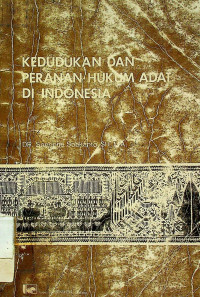 KEDUDUKAN DAN
PERANAN HUKUM ADAT
DI INDONESIA
DR. Soerjono Soekanto, SH, MA